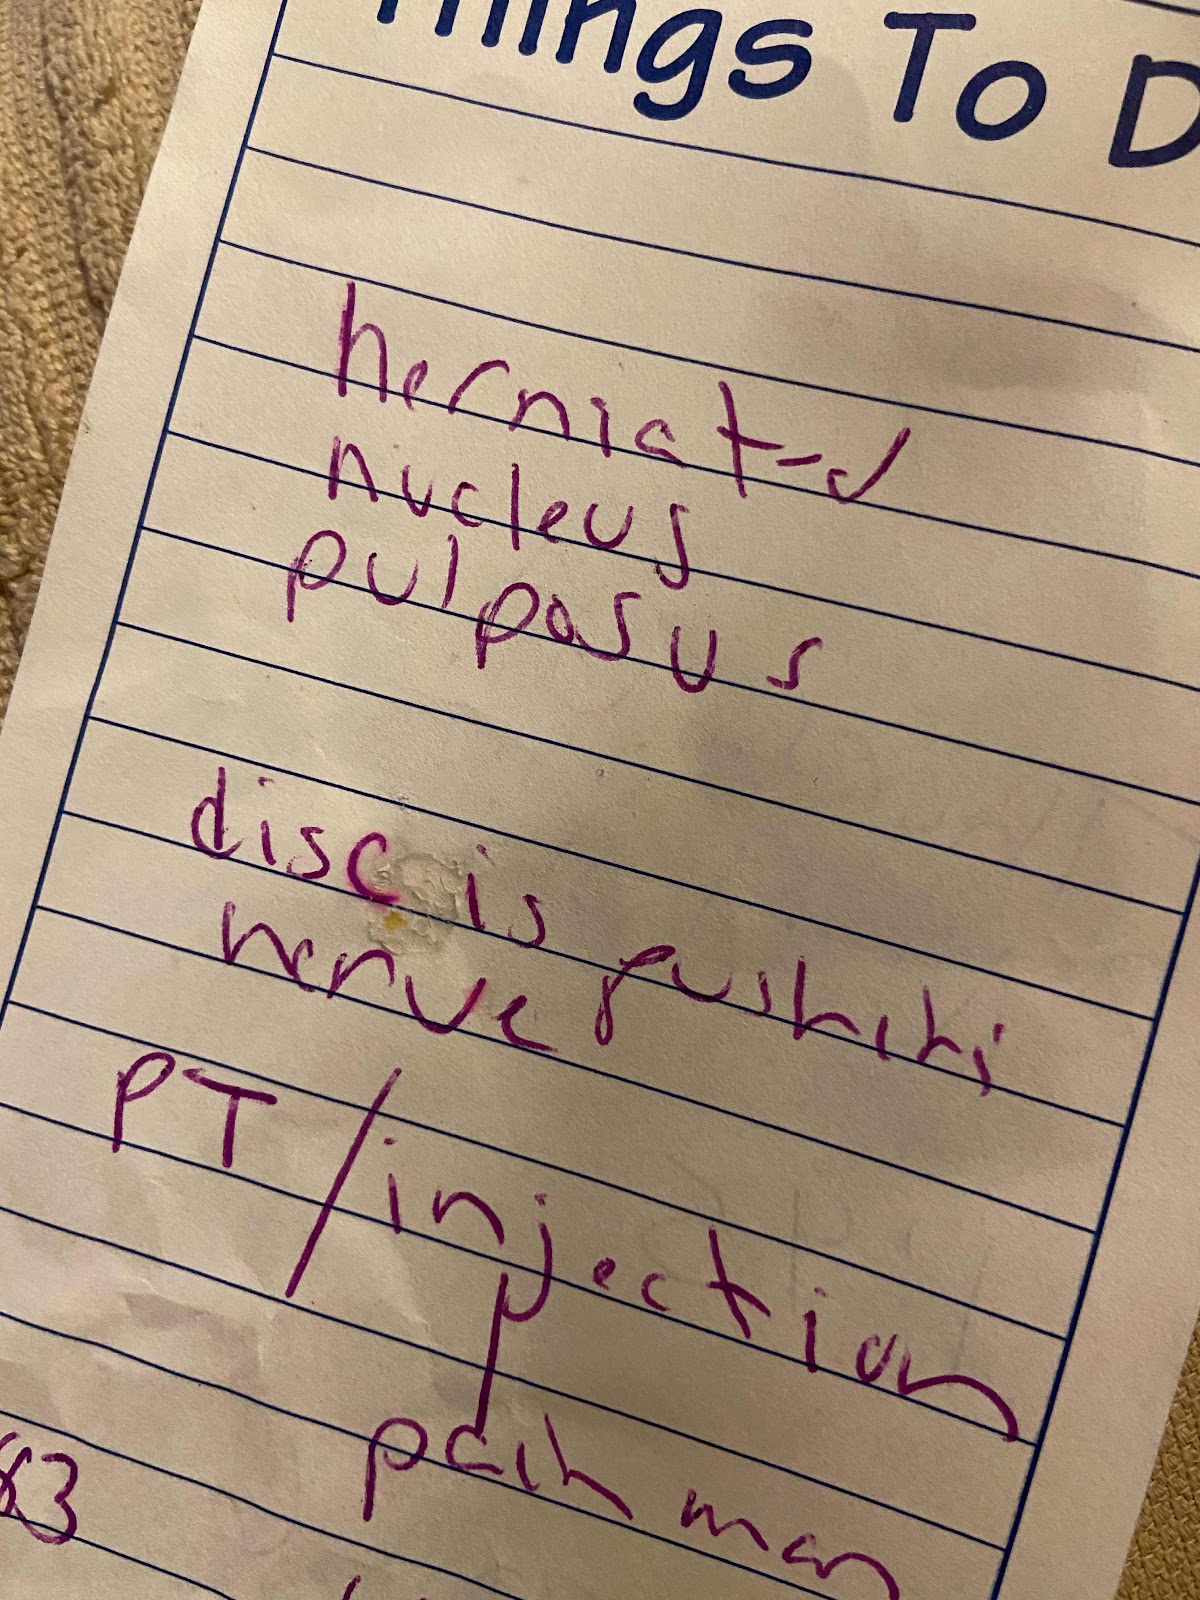 Things To D
herniated
nucleus
pulposus
disc is pushing
nerve
PT/injection
pain man
83